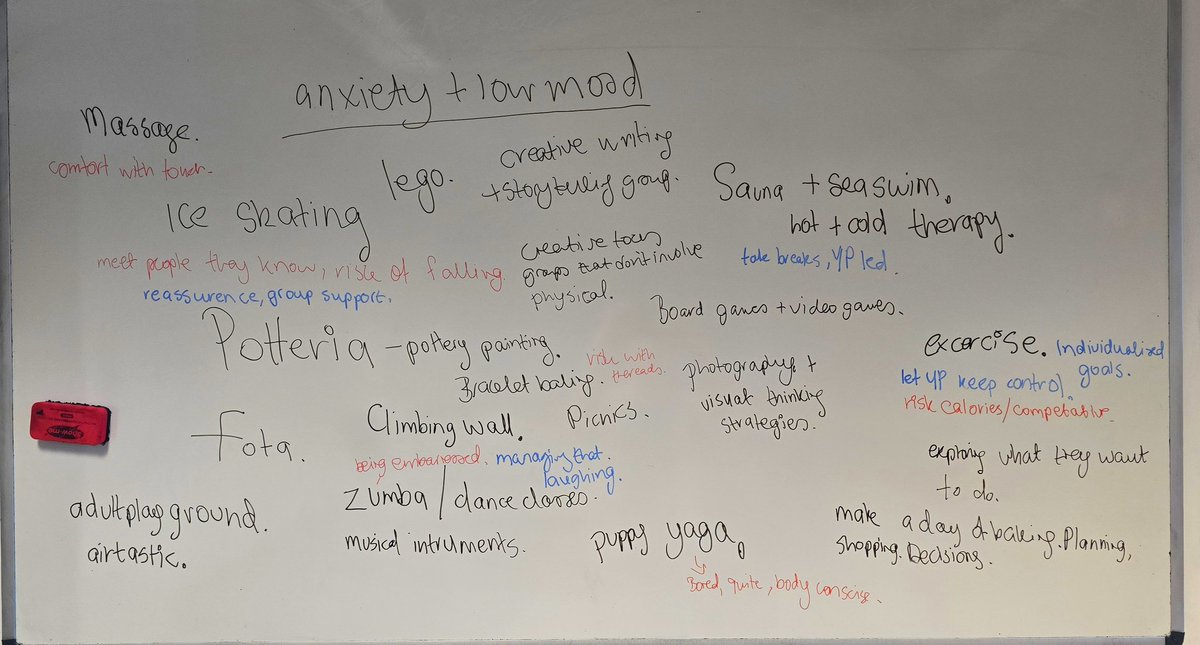 anxiety + low mood
Massage.
comfort with touch.
lego.
creative writing
+ storytelling group.
Sauna + sea swim.
hot + cold therapy.
take breaks, YP led.
Ice skating
meet people they know, risk of falling.
reassurence, group support.
creative
groups that don't involve
physical.
Board games + video games.
Potteria - pottery painting.
Bracelet
risk with
threads.
photography +
visual thinking
strategies.
excercise. Individualised
goals.
let YP keep control.
risk calories/competative.
Fota.
Climbing wall.
Picnics.
being embarressed. managing that.
laughing.
exploring what they want
to do.
adult play ground.
airtastic.
Zumba / dance classes.
musical intruments.
puppy yaga.
Bored, quite, body conscise.
make a day of baking. Planning,
shopping. Decisions.
show-me